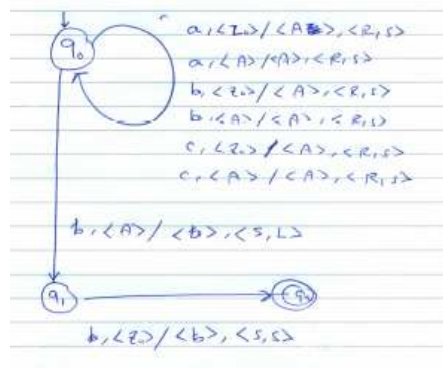 q₀
a, <z₀> / <A>, <R, S>
a, <A> / <A>, <R, S>
b, <z₀> / <A>, <R, S>
b, <A> / <A>, <R, S>
c, <z₀> / <A>, <R, S>
c, <A> / <A>, <R, S>
b, <A> / <b>, <S, L>
q₁
b, <z₀> / <b>, <S, S>